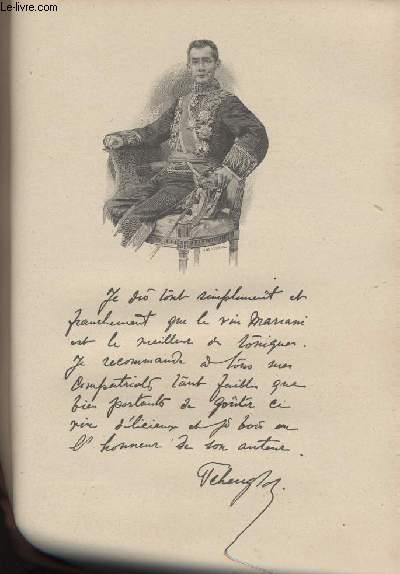 Le-livre.com
Je dis tout simplement et
franchement que le vin Mariani
est le meilleur des toniques.
Je recommande à tous mes
compatriotes tant faibles que
bien portants de goûter ce
vin délicieux et je bois en
l'honneur de son auteur.